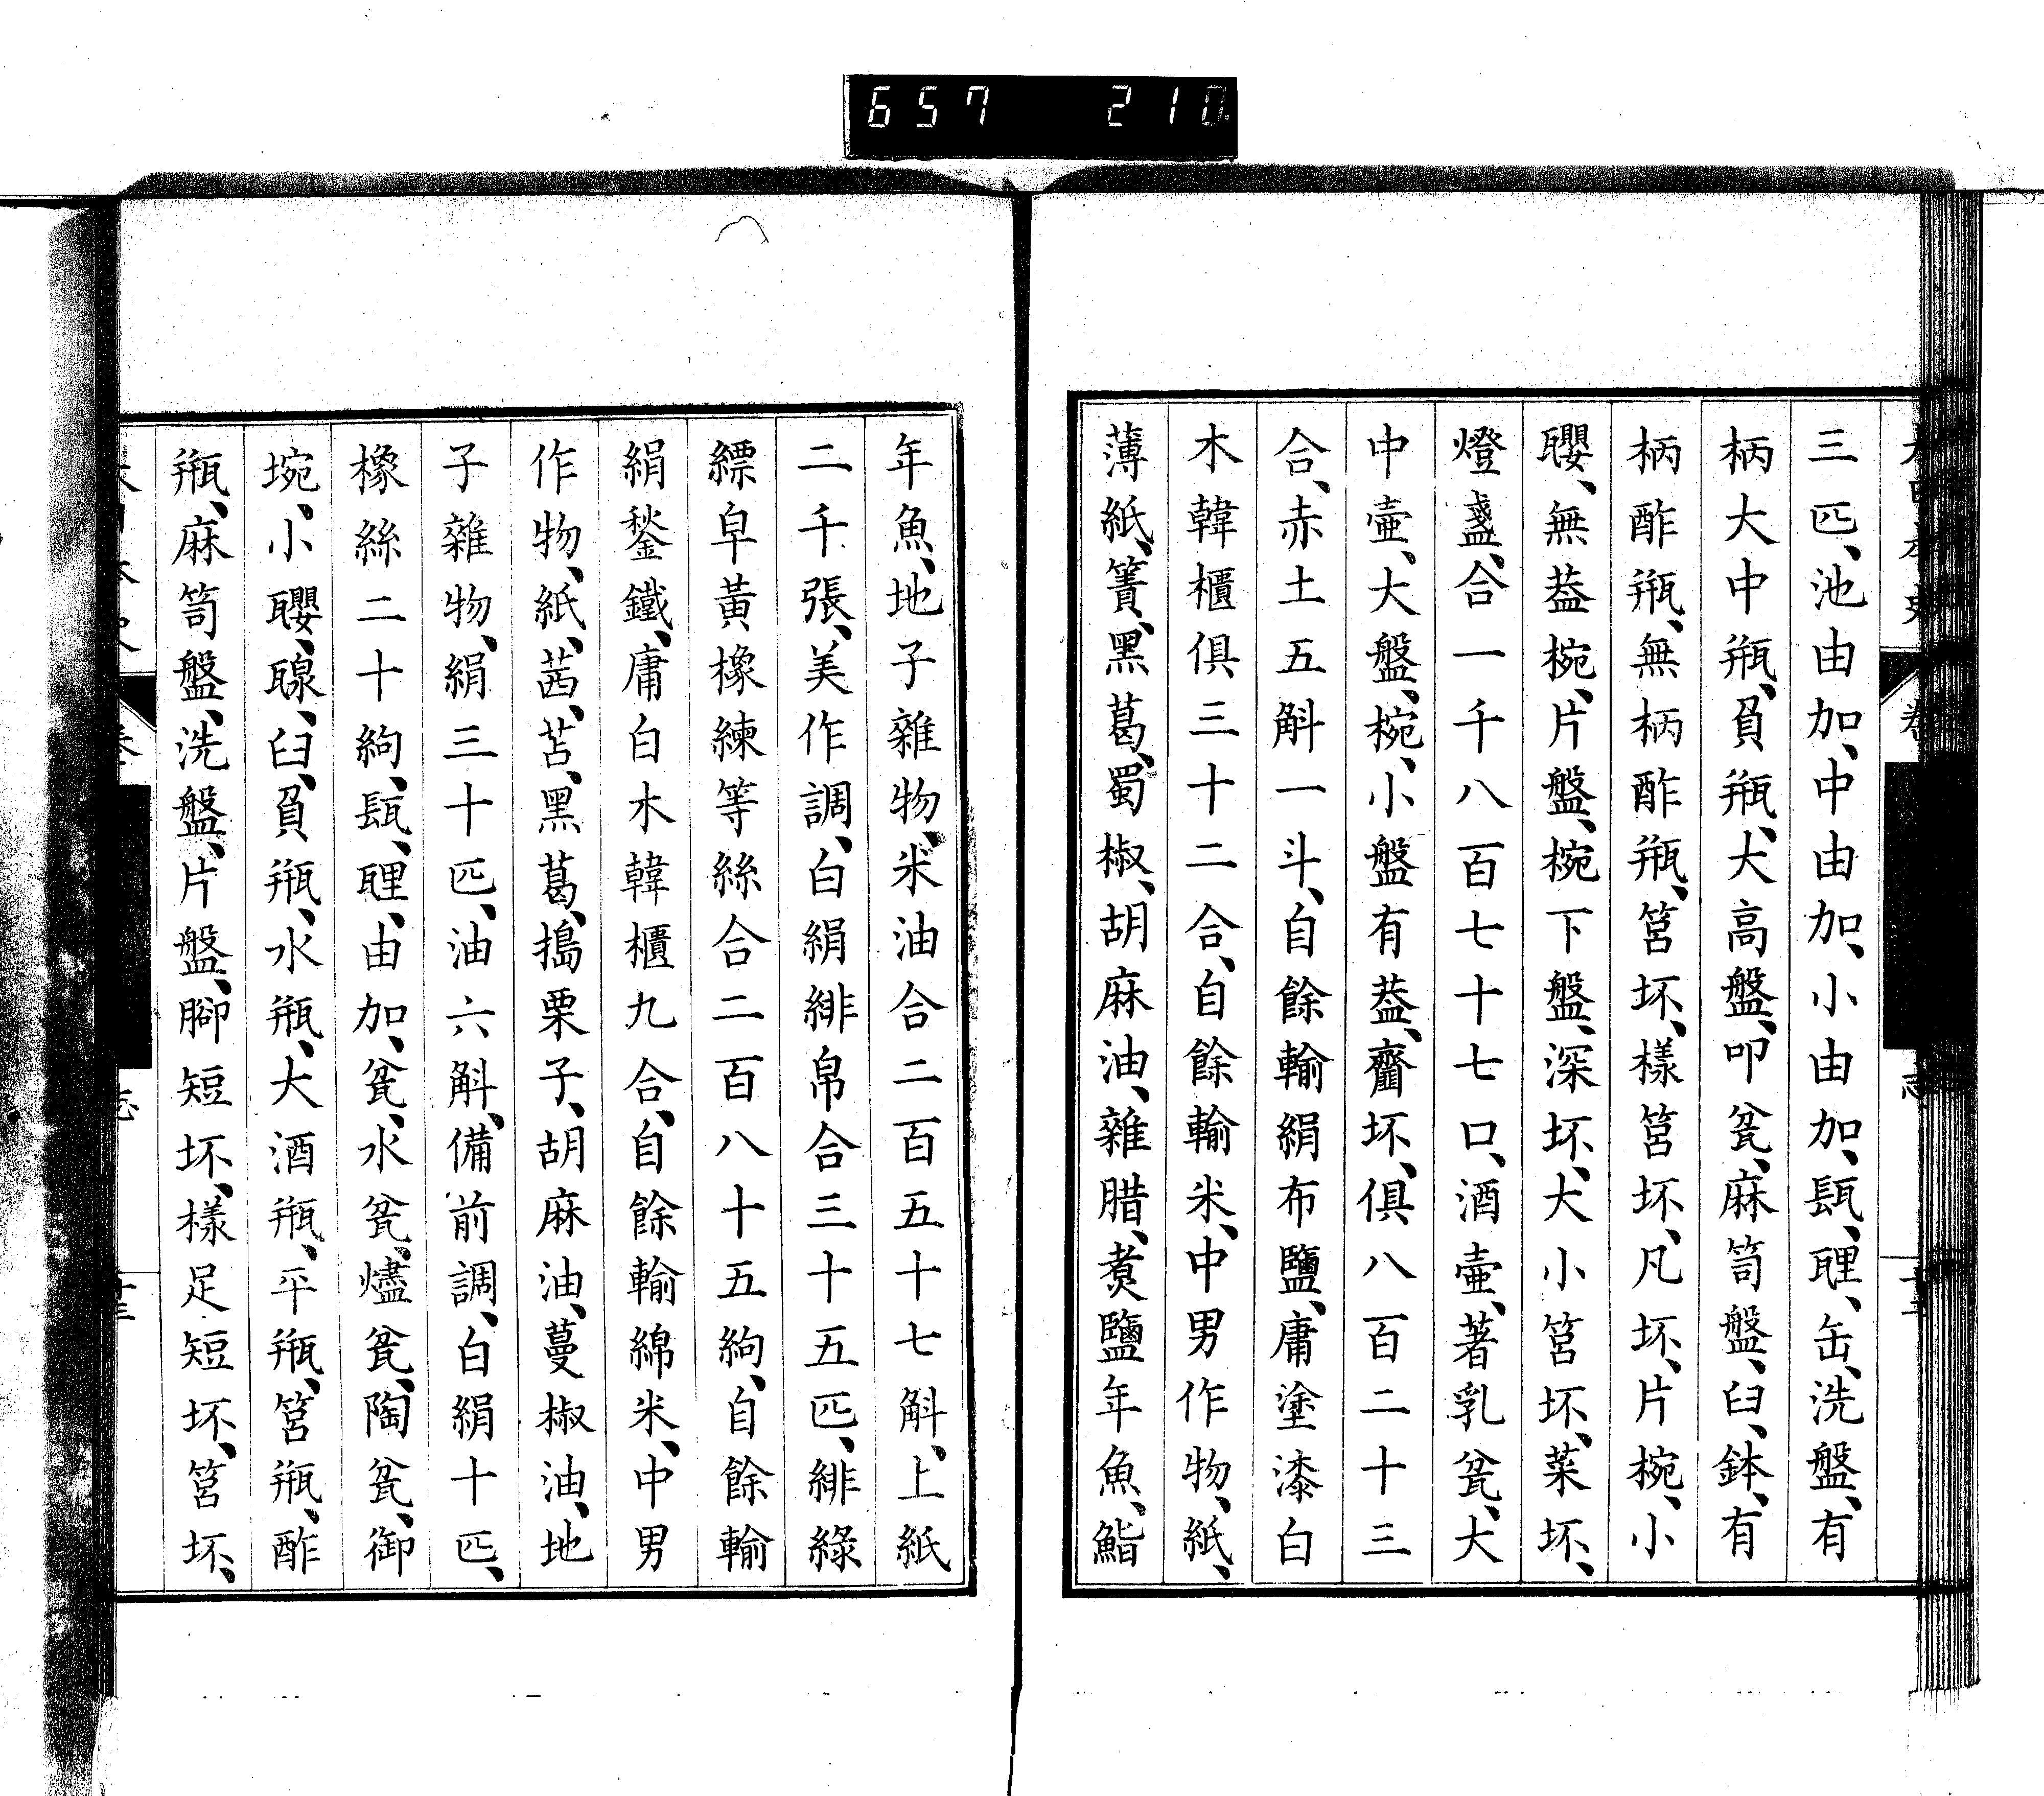 657 210
三匹、池由加、中由加、小由加、瓺、𦉈、缶、洗盤、有
柄大中瓶、負瓶、大高盤、叩瓫、麻笥盤、臼、鉢、有
柄酢瓶、無柄酢瓶、筥坏、様筥坏、凡坏、片椀、小
罌、無葢椀、片盤、椀下盤、深坏、大小筥坏、菜坏、
燈盞、合一千八百七十七口、酒壷、著乳瓫、大
中壷、大盤、椀、小盤有葢、齏坏、俱八百二十三
合、赤土五斛一斗、自餘輸絹布鹽、庸塗漆白
木韓櫃俱三十二合、自餘輸米、中男作物、紙、
薄紙、簀、黑葛、蜀椒、胡麻油、雜腊、煑鹽年魚、鮨
年魚、地子雜物、米油合二百五十七斛、上紙
二千張、美作調、白絹緋帛合三十五匹、緋綠
縹皁黃橡練等絲合二百八十五絇、自餘輸
絹鍫鐵、庸白木韓櫃九合、自餘輸綿米、中男
作物、紙、茜、苫、黑葛、搗栗子、胡麻油、蔓椒油、地
子雜物、絹三十匹、油六斛、備前調、白絹十匹、
橡絲二十絇、瓺、𦉈、由加、瓫、水瓫、燼瓫、陶瓫、御
埦、小罌、臼、負瓶、水瓶、大酒瓶、平瓶、筥瓶、酢
瓶、麻笥盤、洗盤、片盤、腳短坏、樣足短坏、筥坏、